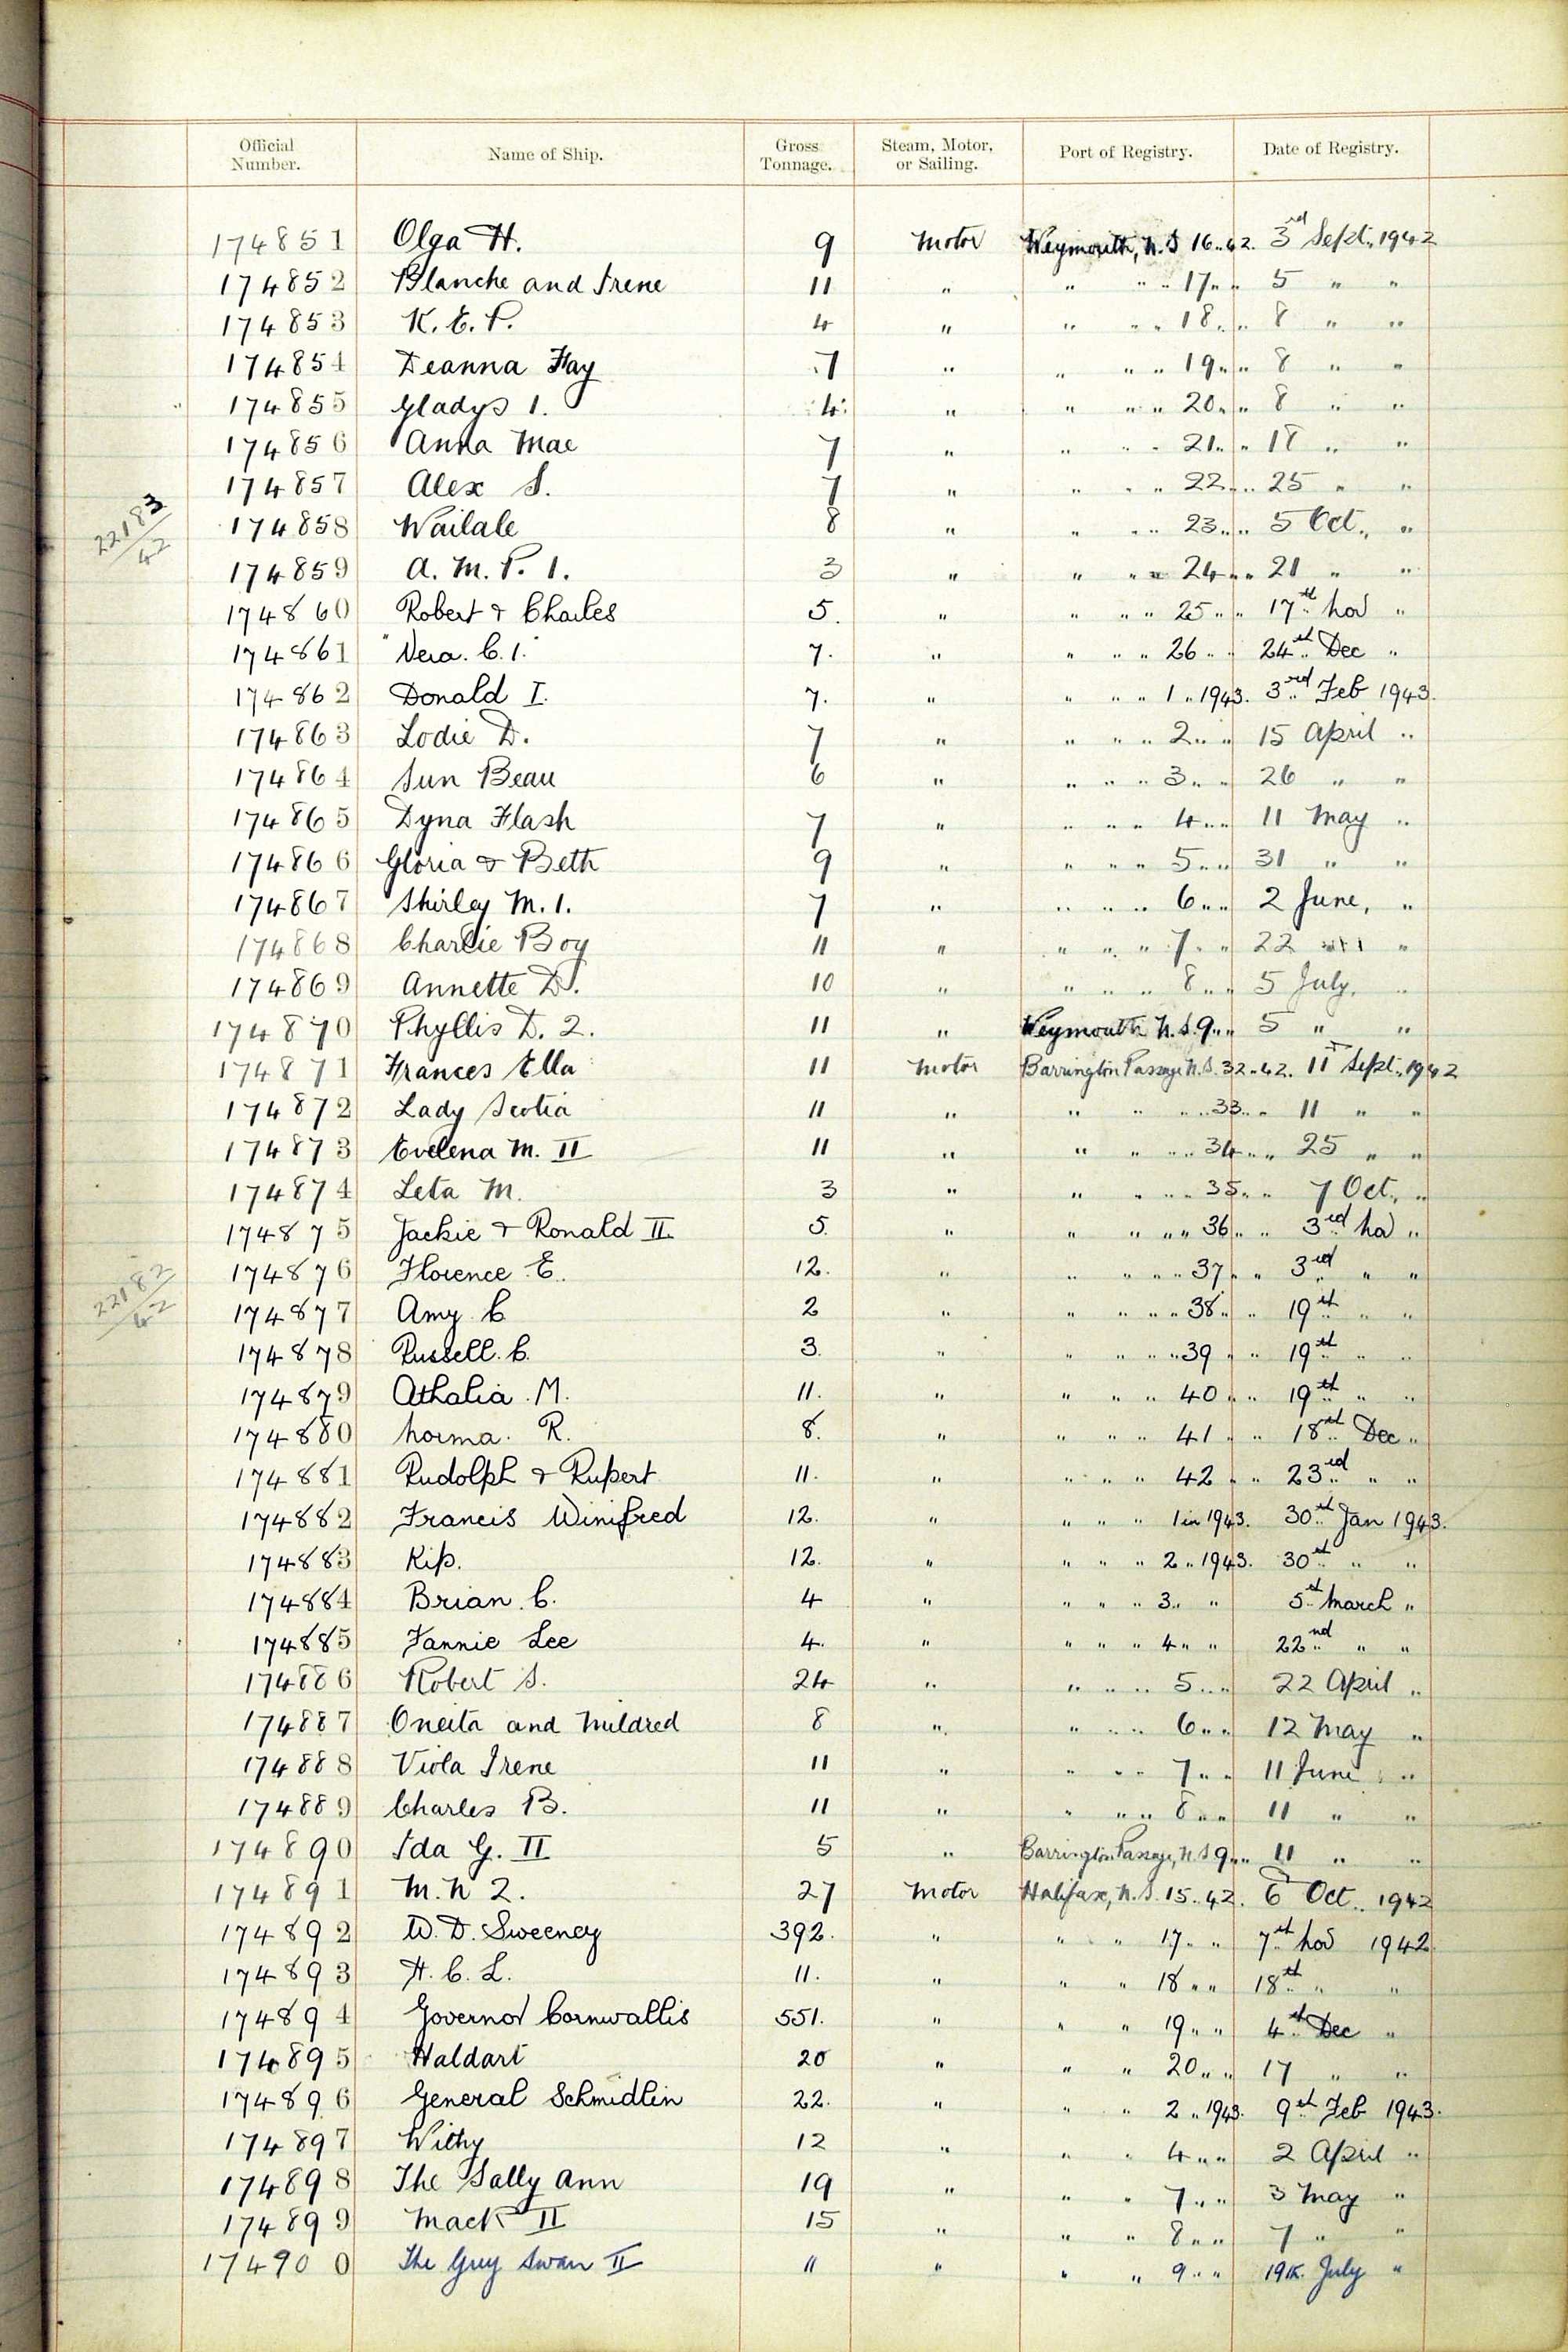 Official Number. Name of Ship. Gross Tonnage. Steam, Motor, or Sailing. Port of Registry. Date of Registry.
174851 Olga H. 9 Motor Weymouth, N.S 16 „ 42. 3rd Sept., 1942
174852 Blanche and Irene 11 „ „ „ „ 17 „ „ 5 „ „
174853 K. E. P. 4 „ „ „ „ 18 „ „ 8 „ „
174854 Deanna Fay 7 „ „ „ „ 19 „ „ 8 „ „
174855 Gladys 1. 4 „ „ „ „ 20 „ „ 8 „ „
174856 Anna Mae 7 „ „ „ „ 21 „ „ 18 „ „
174857 Alex S. 7 „ „ „ „ 22 „ „ 25 „ „
22183/42 174858 Wailale 8 „ „ „ „ 23 „ „ 5 Oct., „
174859 A. M. P. 1. 3 „ „ „ „ 24 „ „ 21 „ „
174860 Robert & Charles 5. „ „ „ „ 25 „ „ 17th Nov „
174861 Vera. C. 1. 7. „ „ „ „ 26 „ „ 24th Dec „
174862 Donald I. 7. „ „ „ „ 1 „ 1943. 3rd Feb 1943.
174863 Lodie D. 7 „ „ „ „ 2 „ „ 15 April „
174864 Sun Beau 6 „ „ „ „ 3 „ „ 26 „ „
174865 Dyna Flash 7 „ „ „ „ 4 „ „ 11 May „
174866 Gloria & Beth 9 „ „ „ „ 5 „ „ 31 „ „
174867 Shirley M. 1. 7 „ „ „ „ 6 „ „ 2 June, „
174868 Charlie Boy 11 „ „ „ „ 7 „ „ 22 „
174869 Annette D. 10 „ „ „ „ 8 „ „ 5 July, „
174870 Phyllis D. 2. 11 „ Weymouth N.S. 9 „ „ 5 „ „
174871 Frances Ella 11 Motor Barrington Passage N.S. 32 „ 42. 11 Sept., 1942
174872 Lady Scotia 11 „ „ „ „ 33 „ „ 11 „ „
174873 Evelena M. II 11 „ „ „ „ 34 „ „ 25 „ „
174874 Leta M. 3 „ „ „ „ 35 „ „ 7 Oct., „
174875 Jackie & Ronald II. 5. „ „ „ „ 36 „ „ 3rd Nov „
22182/42 174876 Florence E. 12. „ „ „ „ 37 „ „ 3rd „ „
174877 Amy C 2 „ „ „ „ 38 „ „ 19th „ „
174878 Russell. C. 3. „ „ „ „ 39 „ „ 19th „ „
174879 Athalia. M. 11. „ „ „ „ 40 „ „ 19th „ „
174880 Norma. R. 8. „ „ „ „ 41 „ „ 18th Dec „
174881 Rudolph & Rupert 11. „ „ „ „ 42 „ „ 23rd „ „
174882 Francis Winifred 12. „ „ „ „ 1 in 1943. 30th Jan 1943.
174883 Kip. 12. „ „ „ „ 2 „ 1943. 30th „ „
174884 Brian. C. 4 „ „ „ „ 3 „ „ 5th March „
174885 Fannie Lee 4. „ „ „ „ 4 „ „ 22nd „ „
174886 Robert S. 24 „ „ „ „ 5 „ „ 22 April „
174887 Oneita and Mildred 8 „ „ „ „ 6 „ „ 12 May „
174888 Viola Irene 11 „ „ „ „ 7 „ „ 11 June „
174889 Charles B. 11 „ „ „ „ 8 „ „ 11 „ „
174890 Ida G. II 5 „ Barrington Passage, N.S 9 „ „ 11 „ „
174891 M. N 2. 27 Motor Halifax, N.S. 15 „ 42. 6 Oct. 1942
174892 W. D. Sweeney 392. „ „ „ 17 „ „ 7th Nov 1942
174893 H. C. L. 11. „ „ „ 18 „ „ 18th „ „
174894 Governor Cornwallis 551. „ „ „ 19 „ „ 4th Dec „
174895 Haldart 20 „ „ „ 20 „ „ 17 „ „
174896 General Schmidlin 22. „ „ „ 2 „ 1943. 9th Feb 1943.
174897 Withy 12 „ „ „ 4 „ „ 2 April „
174898 The Sally Ann 19 „ „ „ 7 „ „ 3 May „
174899 Mack II 15 „ „ „ 8 „ „ 7 „ „
174900 The Grey Swan II 11 „ „ „ 9 „ „ 19th. July „